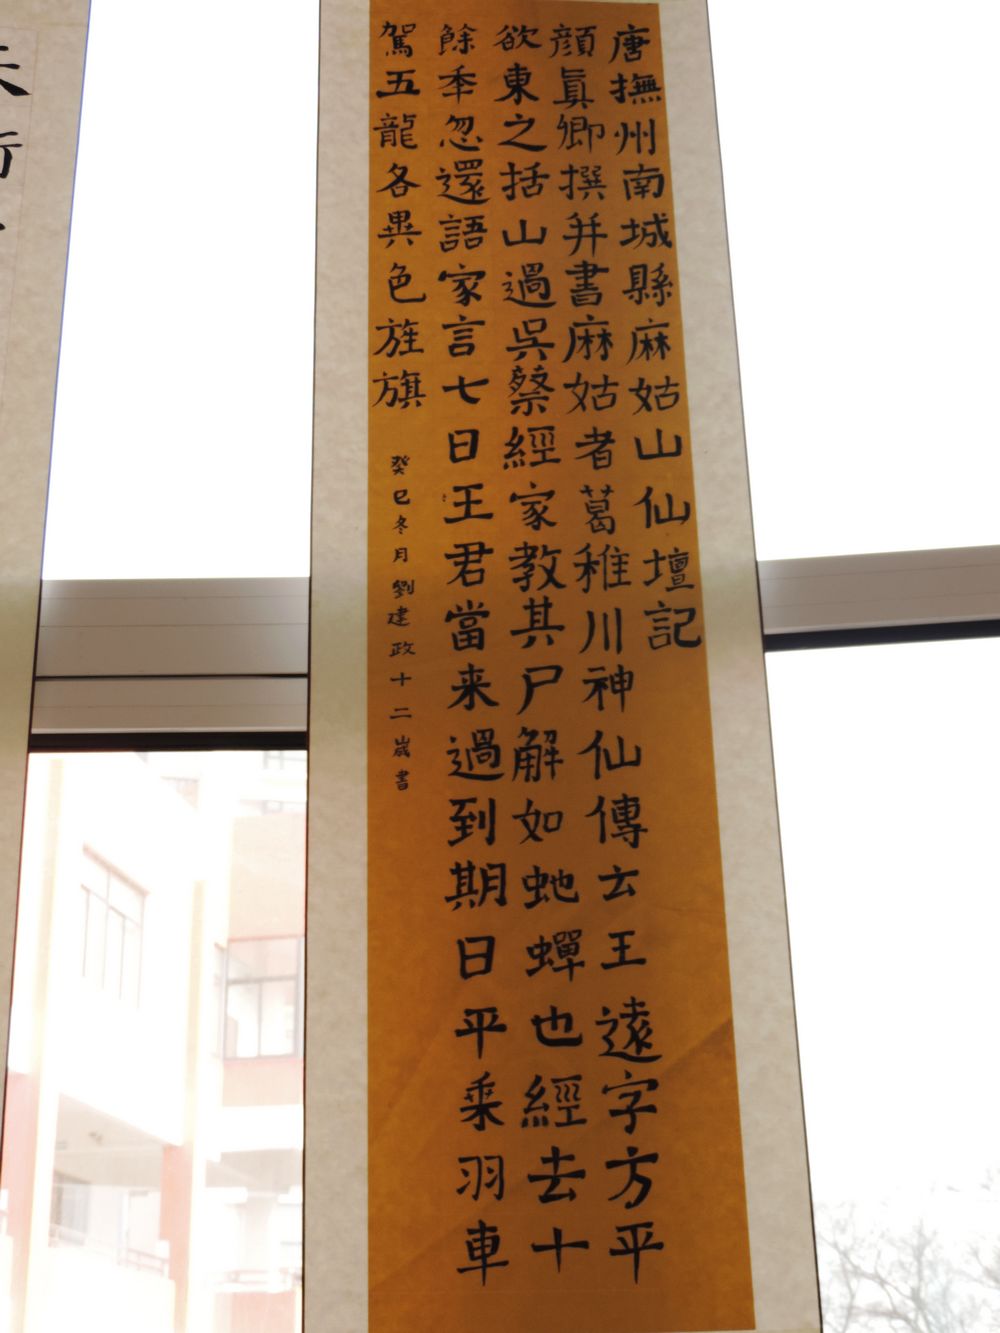 唐撫州南城縣麻姑山仙壇記
顏眞卿撰并書麻姑者葛稚川神仙傳云王遠字方平
欲東之括山過吳蔡經家教其尸解如虵蟬也經去十
餘年忽還語家言七日王君當来過到期日平乗羽車
駕五龍各異色旌旗
癸巳冬月劉建政十二歲書